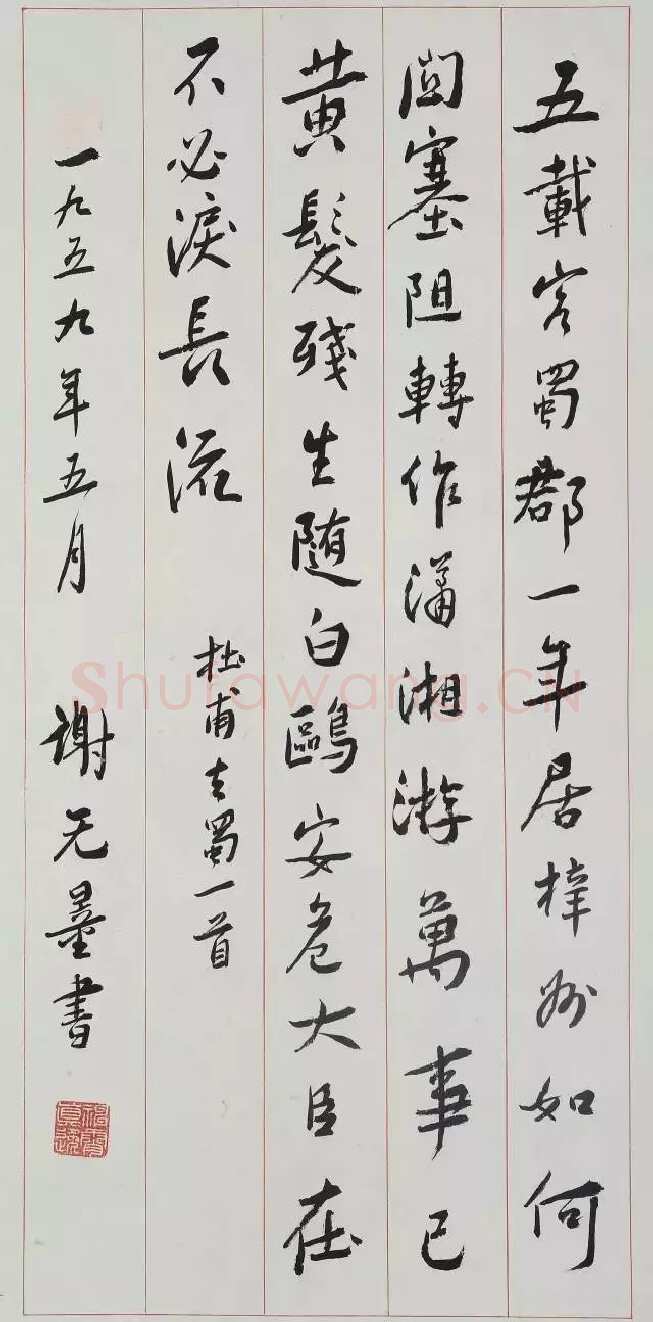 五載客蜀郡一年居梓州如何
関塞阻轉作瀟湘游萬事已
黄髮殘生随白鷗安危大臣在
不必淚長流
杜甫去蜀一首
一九五九年五月 謝无量書
Shufawang.CN